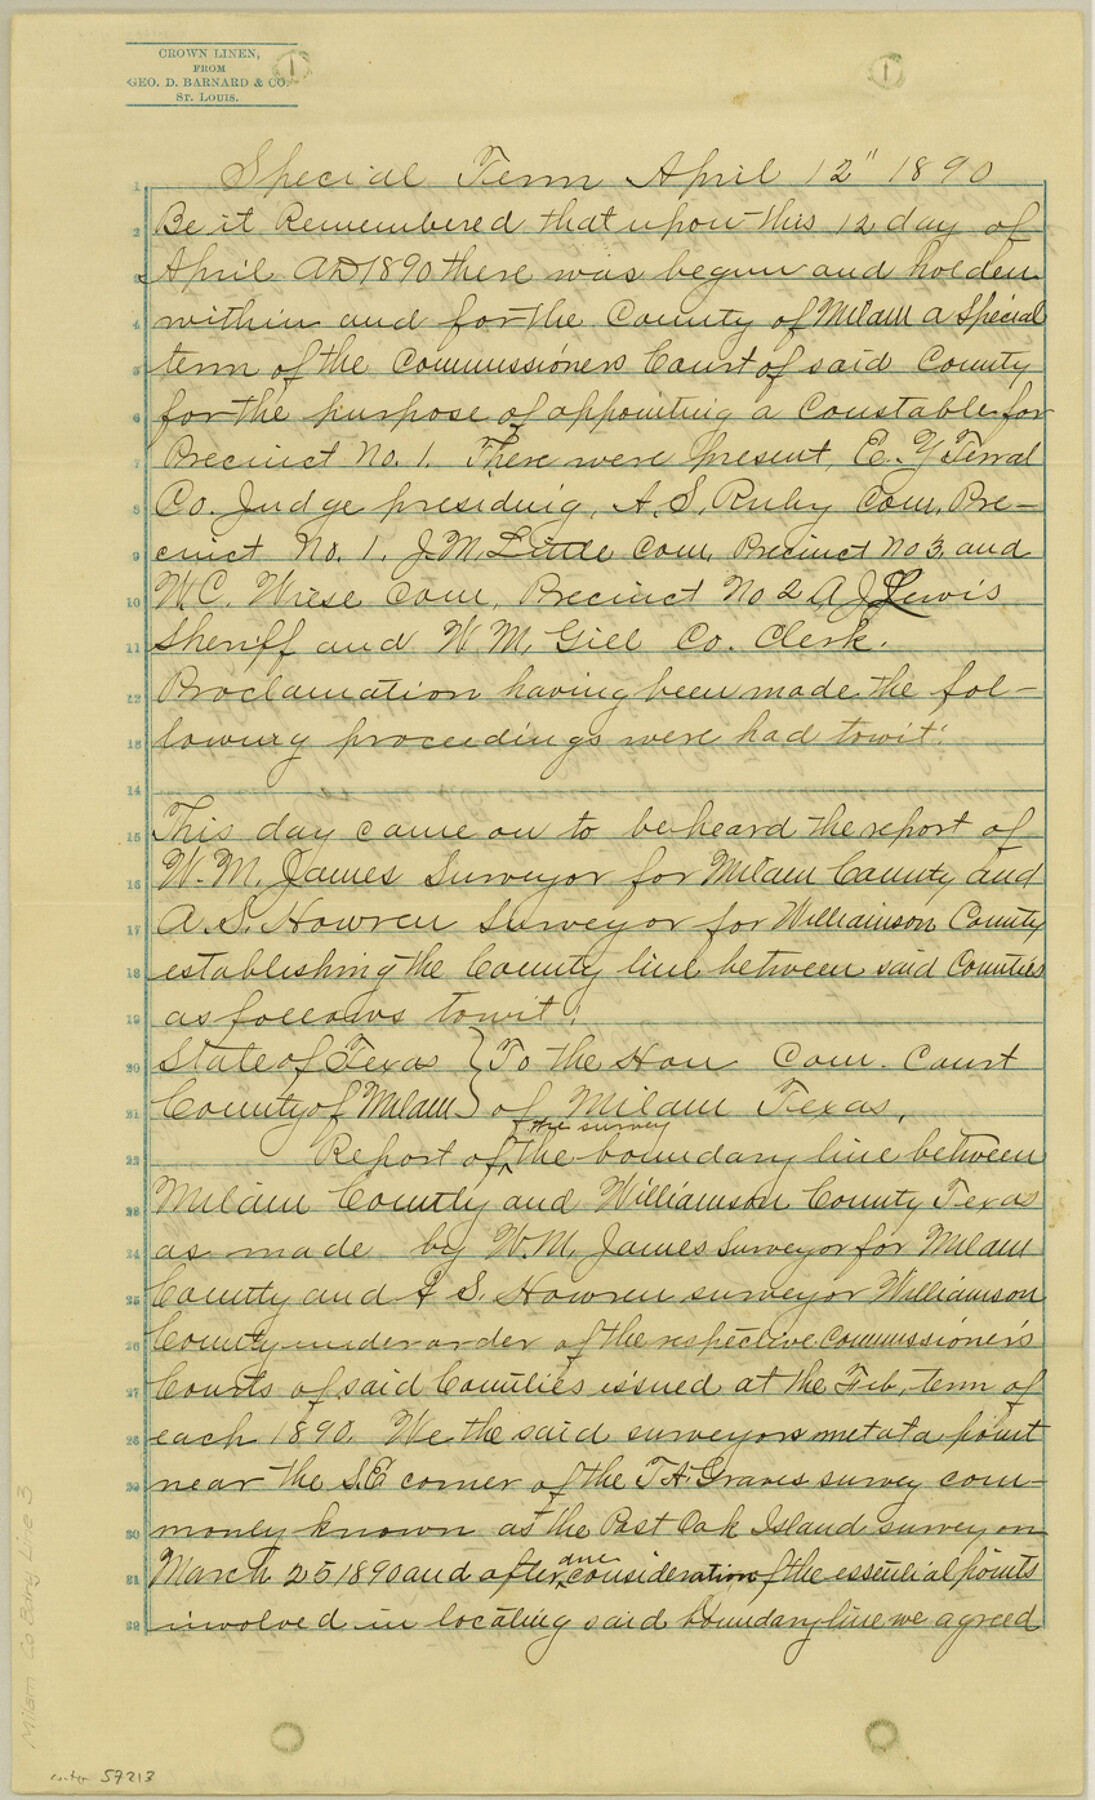 CROWN LINEN,
FROM
GEO. D. BARNARD & CO.
ST. LOUIS.
1
1
Special Term April 12" 1890
1
Be it Remembered that upon this 12 day of
2
April AD 1890 there was begun and holden
3
within and for the County of Milam a Special
4
term of the Commissioners Court of said County
5
for the purpose of appointing a Constable for
6
Precinct No. 1. There were present, E. Y. Terral
7
Co. Judge presiding, A. S. Ruby Com. Pre-
8
cinct No. 1. J. M. Little Com. Precinct No 3, and
9
W. C. Wiese Com, Precinct No 2 A J Lewis
10
Sheriff and W. M. Gill Co. Clerk.
11
Proclamation having been made the fol-
12
lowing proceedings were had towit:
13
14
This day came on to be heard the report of
15
W. M. James Surveyor for Milam County and
16
A. S. Howren Surveyor for Williamson County
17
establishing the County line between said Counties
18
as follows towit:
19
State of Texas } To the Hon Com. Court
20
County of Milam } of Milam Texas,
21
the survey
Report of ^ the boundary line between
22
Milam County and Williamson County Texas
23
as made by W. M. James Surveyor for Milam
24
County and A S. Howren surveyor Williamson
25
County under order of the respective Commissioner's
26
Courts of said Counties issued at the Feb, term of
27
each 1890. We the said surveyors met at a point
28
near the S.E corner of the T. A. Graves survey com-
29
monly known as the Post Oak Island survey on
30
due
March 25 1890 and after ^ consideration of the essential points
31
involved in locating said boundary line we agreed
32
Milam Co Bdry Line 3
57213